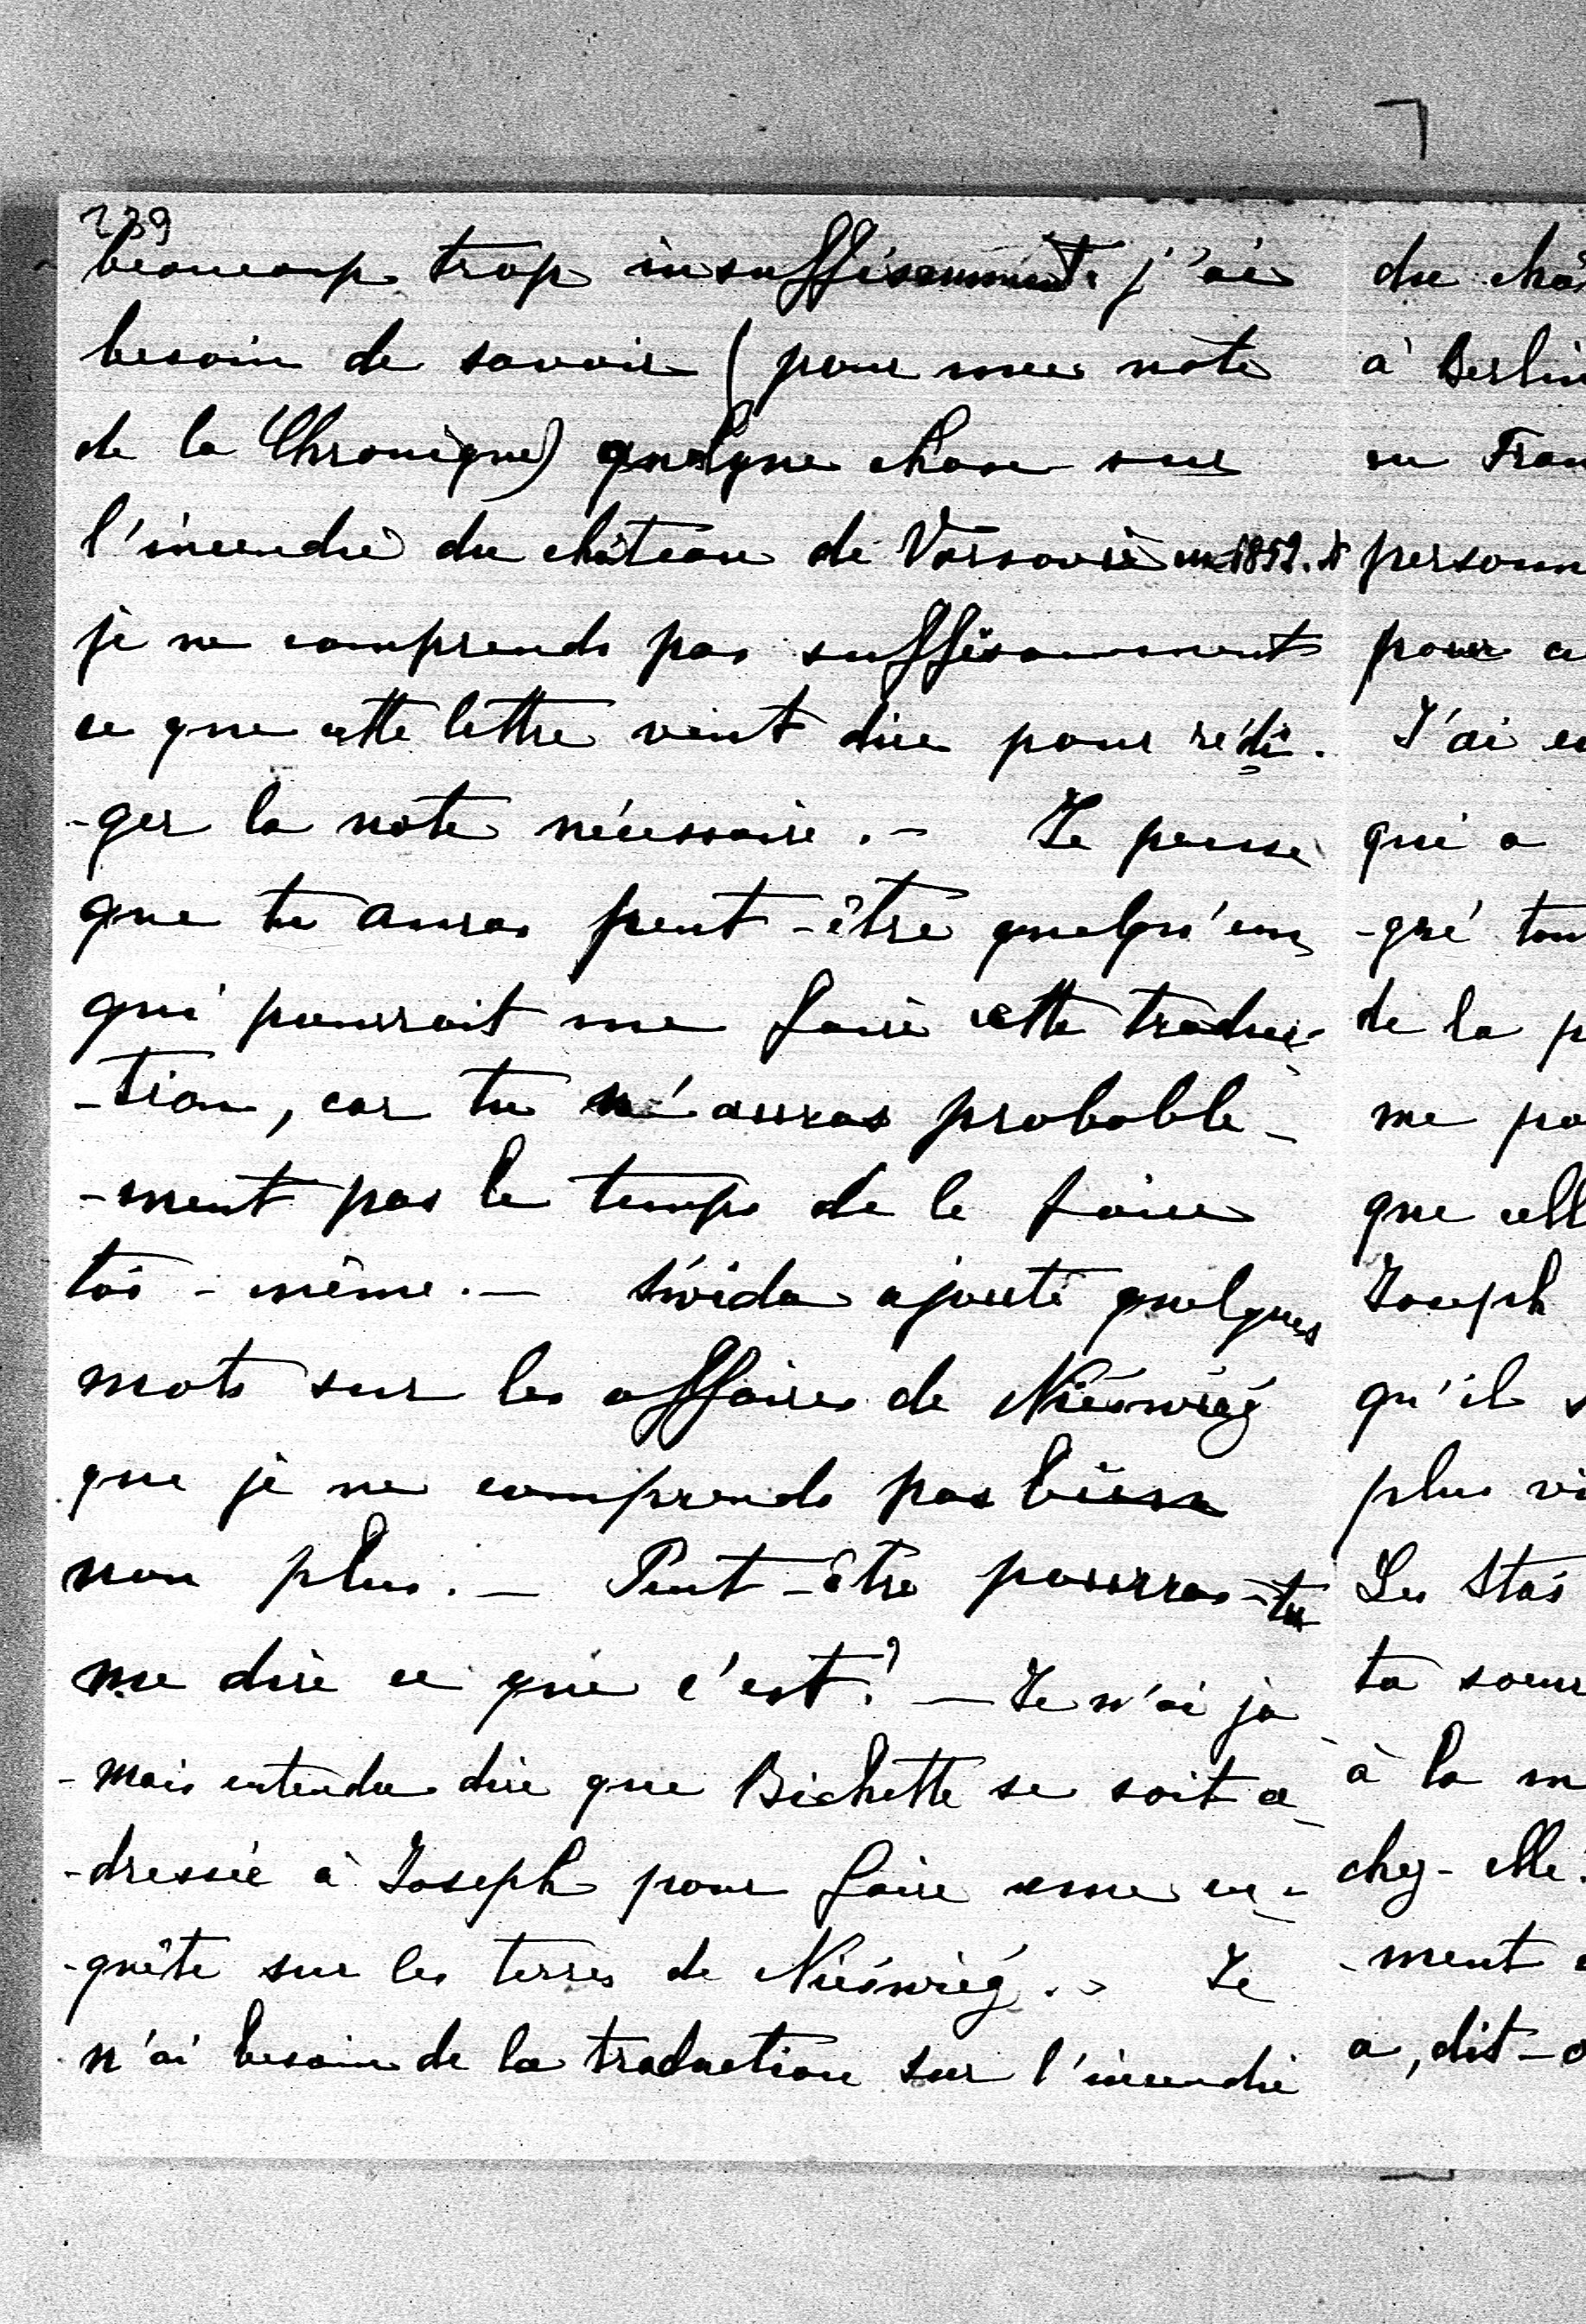 239
beaucoup trop insuffisamment. j'ai
besoin de savoir (pour une note
de la Chronique) quelque chose sur
l'incendie du château de Varsovie en 1852. et
je ne comprends pas suffisamment
ce que cette lettre veut dire pour rédi-
-ger la note nécessaire. - Je pense
que tu auras peut-être quelqu'un
qui pourrait me faire cette traduc-
-tion, car tu n'auras probable-
-ment pas le temps de le faire
toi-même. - Swida ajoute quelques
mots sur les affaires de Nieświeź
que je ne comprends pas bien
non plus. - Peut-être pourras-tu
me dire ce que c'est? - Je n'ai ja
-mais entendu dire que Bichette se soit a-
-dressée à Joseph pour faire une en-
-quête sur les terres de Nieświeź. - Je
n'ai besoin de la traduction sur l'incendie
du châ
à Berlin
en Fran
personn
pour a
J'ai eu
qui a
-gré tou
de la p
me pa
que cell
Joseph
qu'il s
plus vi
Les Stas
ta soeur
à la m
chez-elle.
-ment
a, dit-o